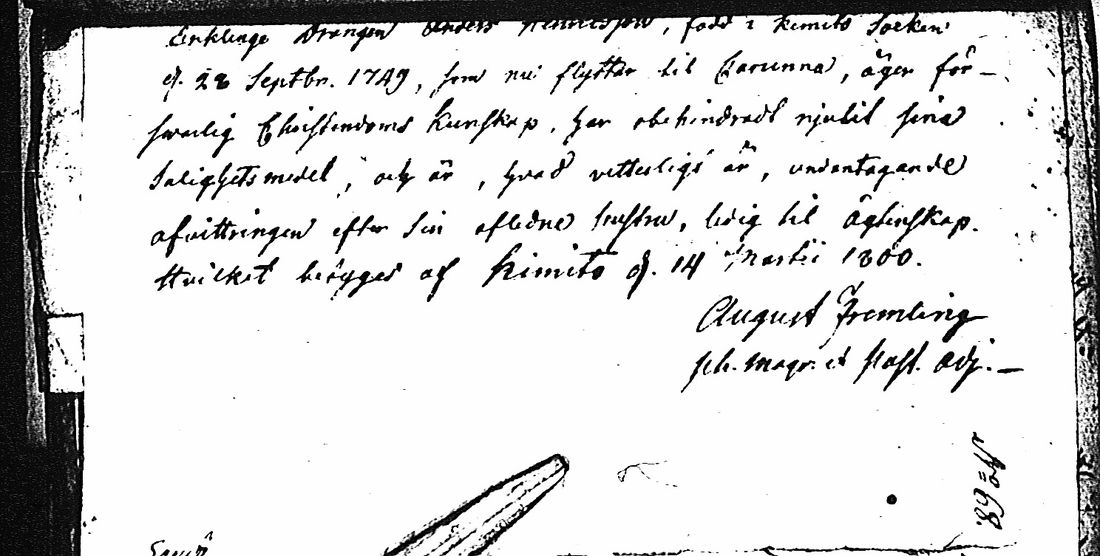 Enklinge Drängen Anders Hendersson, född i Kimito Socken
d. 28 Septbr. 1749, som nu flyttar til Carunna, äger för-
svarlig Christendoms Kunskap, har obehindradt njutit sina
Salighetsmedel, och är, hvad vitterligt är, undantagande
afvittringen efter sin aflidne hustru, ledig til Ägtenskap.
Hvilket betygas af Kimito d. 14 Martii 1800.
August Fremling
ph. magr. et Past. adj.